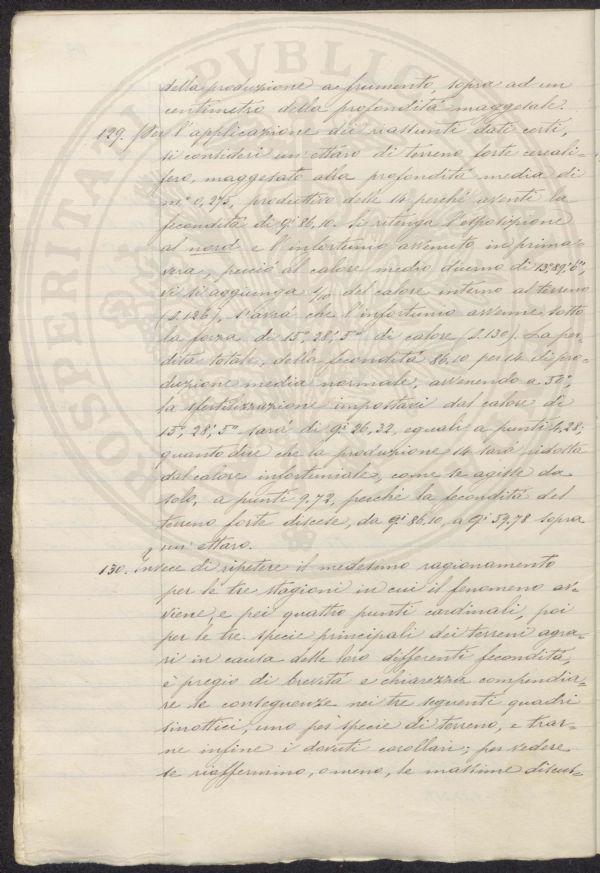 della produzione a frumento, sopra ad un
centimetro della profondità maggesale.
129. Per l'applicazione dei riassunti dati certi,
si consideri un ettaro di terreno forte cereali=
fero, maggesato alla profondità media di
m.i 0,275, produttivo delle 14 perché aventi la
fecondità di q.i 86,10. Si ritenga l'esposizione
al nord e l'infortunio avvenuto in prima=
vera, perciò al calore medio diurno di 13°,89',6",
vi si aggiunga 1/10 del calore interno al terreno
(§.126), s'avrà che l'infortunio avvenne sotto
la forza di 15°,28',5" di calore (§.130). La per=
dita totale, della fecondità 86,10 per 14 di pro=
duzione media normale, avvenendo a 50°,
la sterilizzazione impostavi dal calore di
15°,28',5" sarà di q.i 26,32, eguali a punti 4,28;
quanto dire che la produzione 14 sarà ridotta
dal calore infortuniale, come se agisse da
solo, a punti 9,72, perché la fecondità del
terreno forte discese, da q.i 86,10, a q.i 59,78 sopra
un ettaro.
130. Invece di ripetere il medesimo ragionamento
per le tre stagioni in cui il fenomeno av=
viene, e pei quattro punti cardinali, poi
per le tre specie principali dei terreni agra=
ri in causa delle loro differenti fecondità,
è pregio di brevità e chiarezza compendia=
re le conseguenze nei tre seguenti quadri
sinottici, uno per specie di terreno, e trar=
ne infine i dovuti corollari; per vedere
se riaffermino, o meno, le massime discus=
PROSPERITATI PVBLICAE